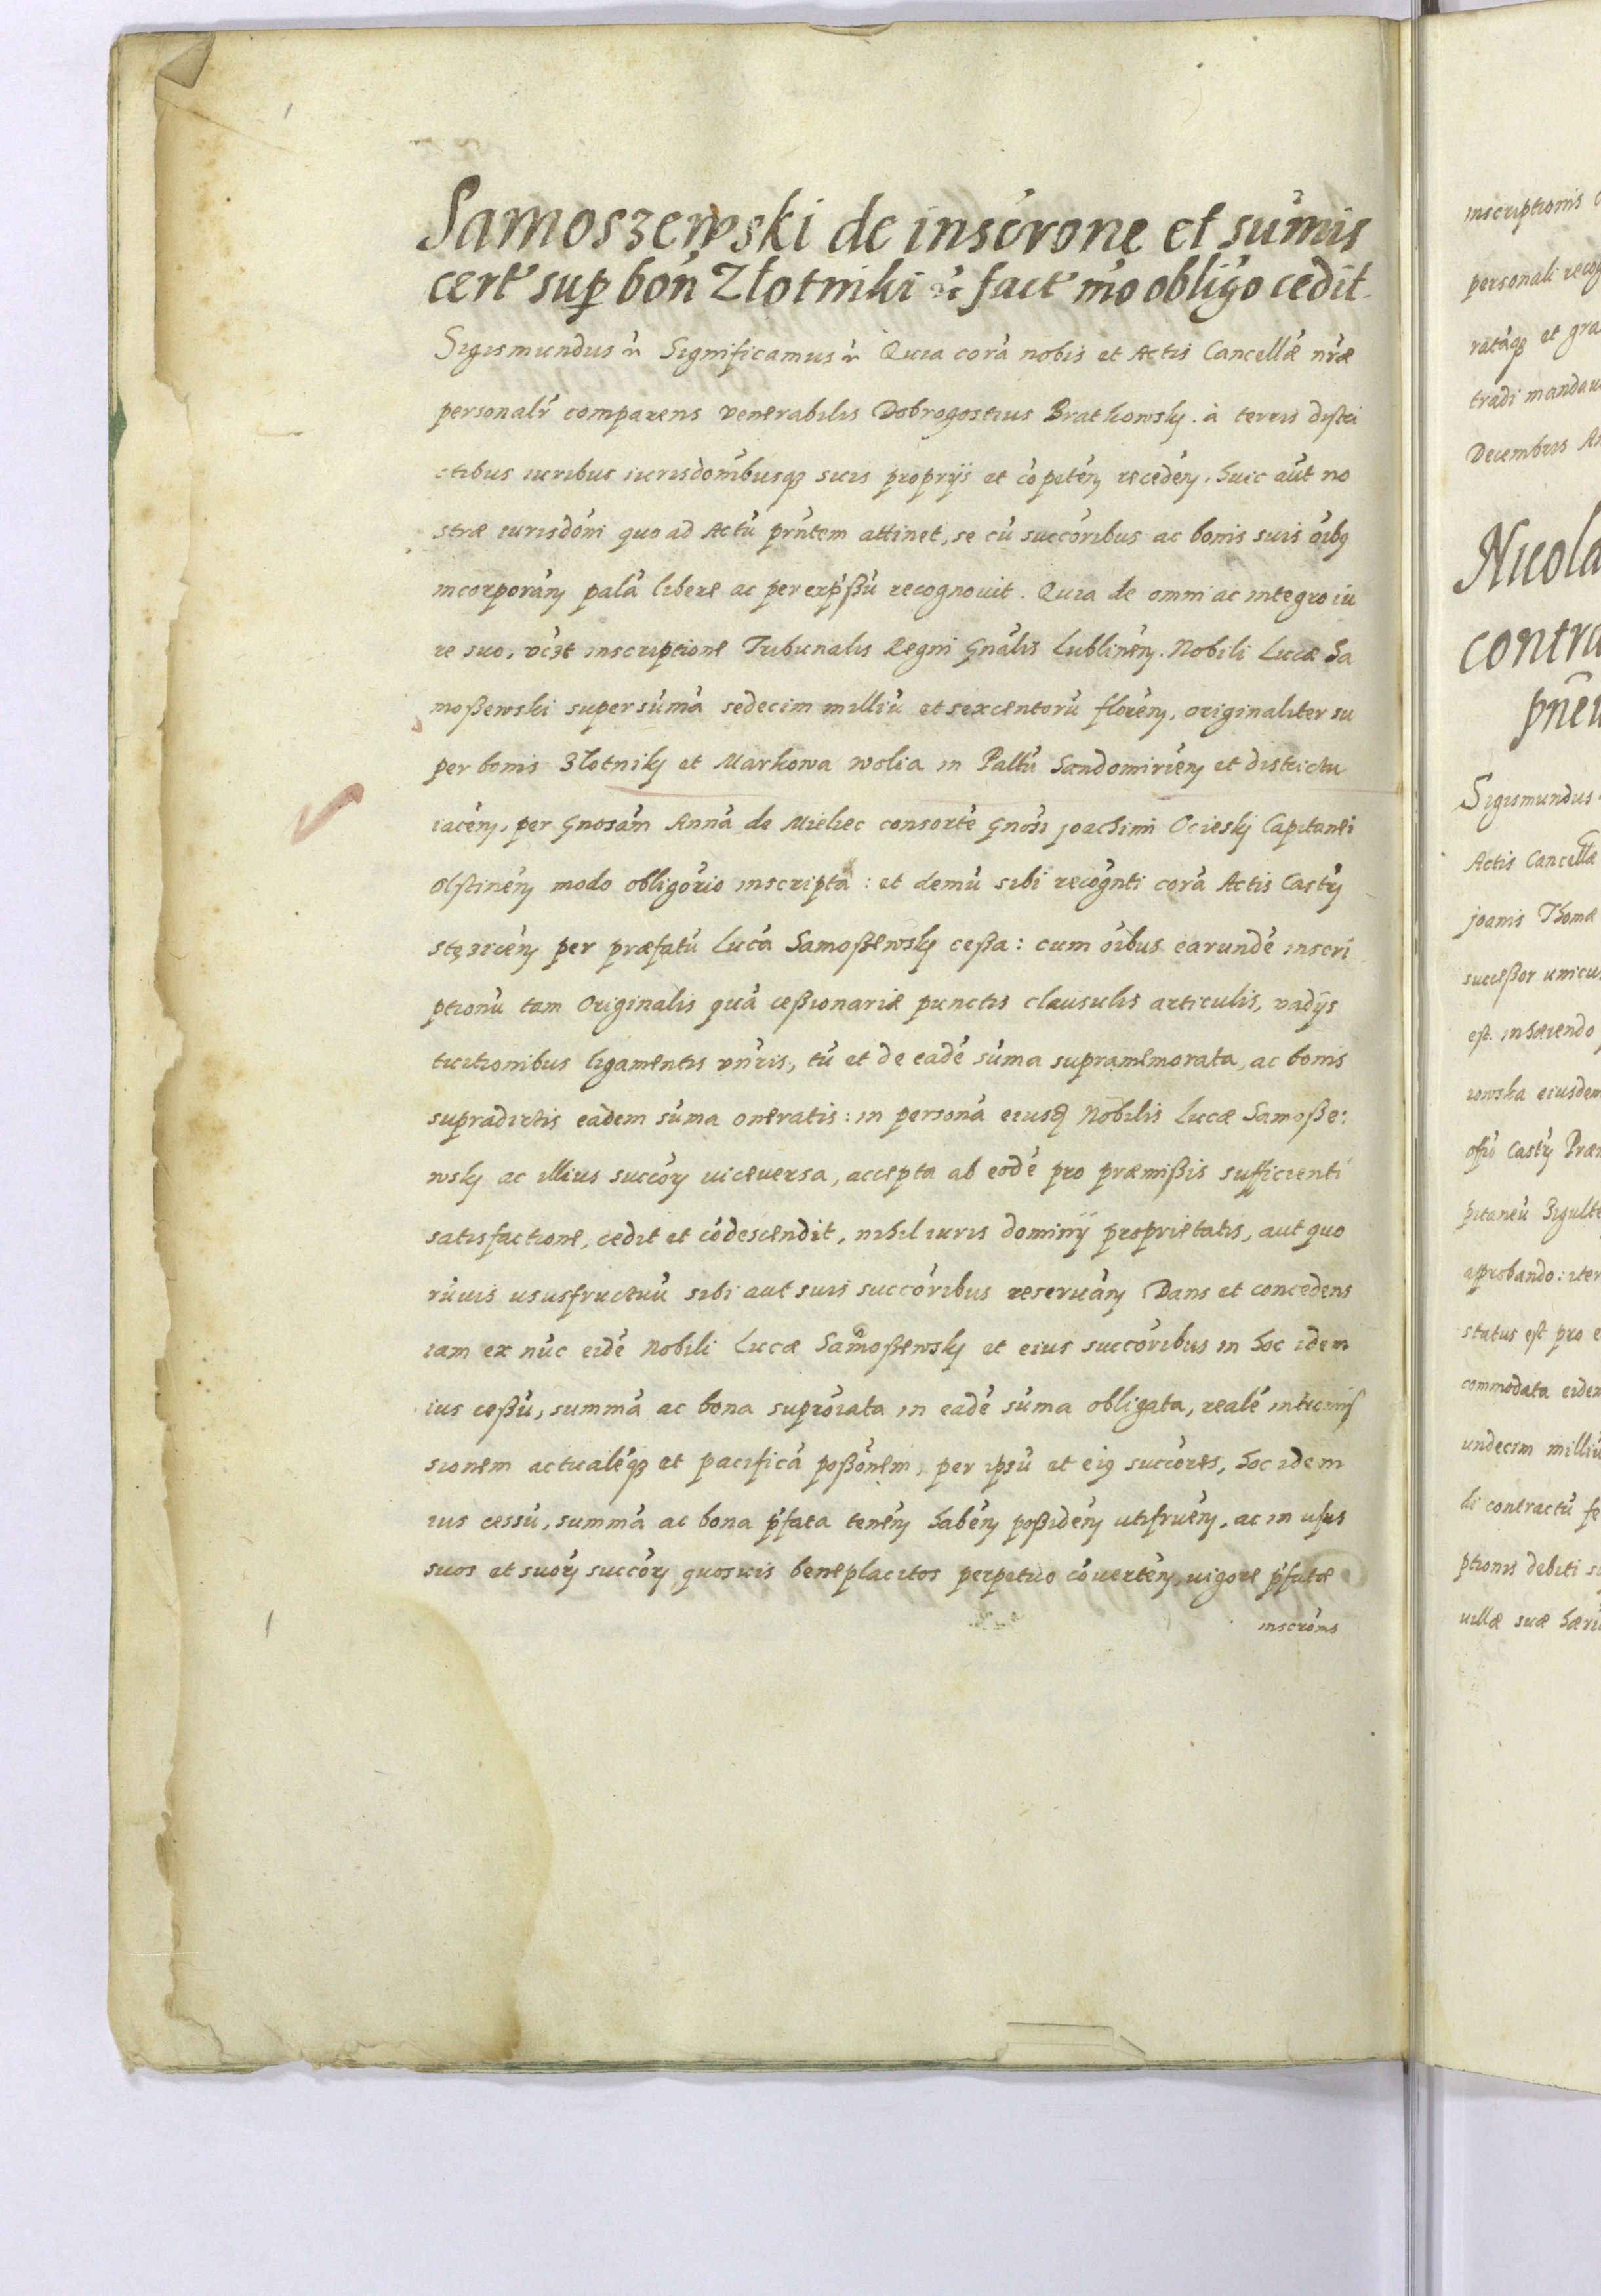 Samoszewski de inscrone et sumis
cert sup bon Zlotniki fact mo obligo cedit
Sigismundus Significamus Quia corā nobis et Actis Cancellæ nræ
personalr comparens venerabilis Dobrogostius Bratkowskj. à terris distri
ctibus iuribus iurisdombusq3 suis proprijs et copeten recedén, huic aut no
stræ iurisdoni quo ad Actū prntem attinet, se cū succoribus ac bonis suis oibq
incorporan palā libere ac per expßū recognovit. Quia de omni ac integro iu
re suo, inscriptione Tribunalis Regni Gnalis Lublinen. Nobili Lucæ Sa
moßewski super sūmā sedecim milliū et sexcentorū floren, originaliter su
per bonis Złotnikj et Markowa wolia in Pallū Sandomirien et districtu
iacen, per Gnosam Annā de Mielec consortē Gnosi joachimi Ocieskj Capitanei
olstinen modo obligorio inscripta: et demū sibi recognti corā Actis Castrn
stężicen per præfatū Lucā Samoßewskj ceßa: cum oibus earundē inscri
ptionū tam Originalis quā ceßionariæ punctis clausulis articulis, vadijs
tuitionibus ligamentis vnris, tū et de eadē sūma supramemorata, ac bonis
supradictis eadem sūma oneratis: in personā eiusd Nobilis Lucæ Samoße:
wskj ac illius succor viceversa, accepta ab eodē pro præmißis sufficienti
satisfactione, cedit et cōdescendit, nihil iuris dominij proprietatis, aut quo
rūvis ususfructuū sibi aut suis succoribus reservan Dans et concedens
iam ex nūc eidē Nobili Lucæ Samoßewskj et eius succoribus in hoc idem
ius ceßū, summā ac bona suprorata in eadē sūma obligata, realē intromis
sionem actualēq3 et pacificā poßonem, per ipsū et eiq succores, hoc idem
ius cessū, summā ac bona pfata tenen haben poßiden utifruen, ac in usus
suos et suor succor quosvis beneplacitos perpetuo cōverten, vigore pfatæ
inscroms
inscriptionis
personali recog
ratāq3 et gra
tradi mandau
Decembris An
Nicola
contra
pneu
Sigismundus
Actis Cancellæ
joanis Thomæ
succeßor unicus
est. inhærendo
iowska eiusdem
offo Castrn Præm
pitaneū Zigult
approbando: iter
status est pro e
commodata eidem
undecim milliū
li contractū fe
ptionis debiti su
villæ suæ hæri